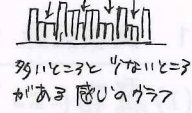 多いところと少ないところ
がある感じのグラフ